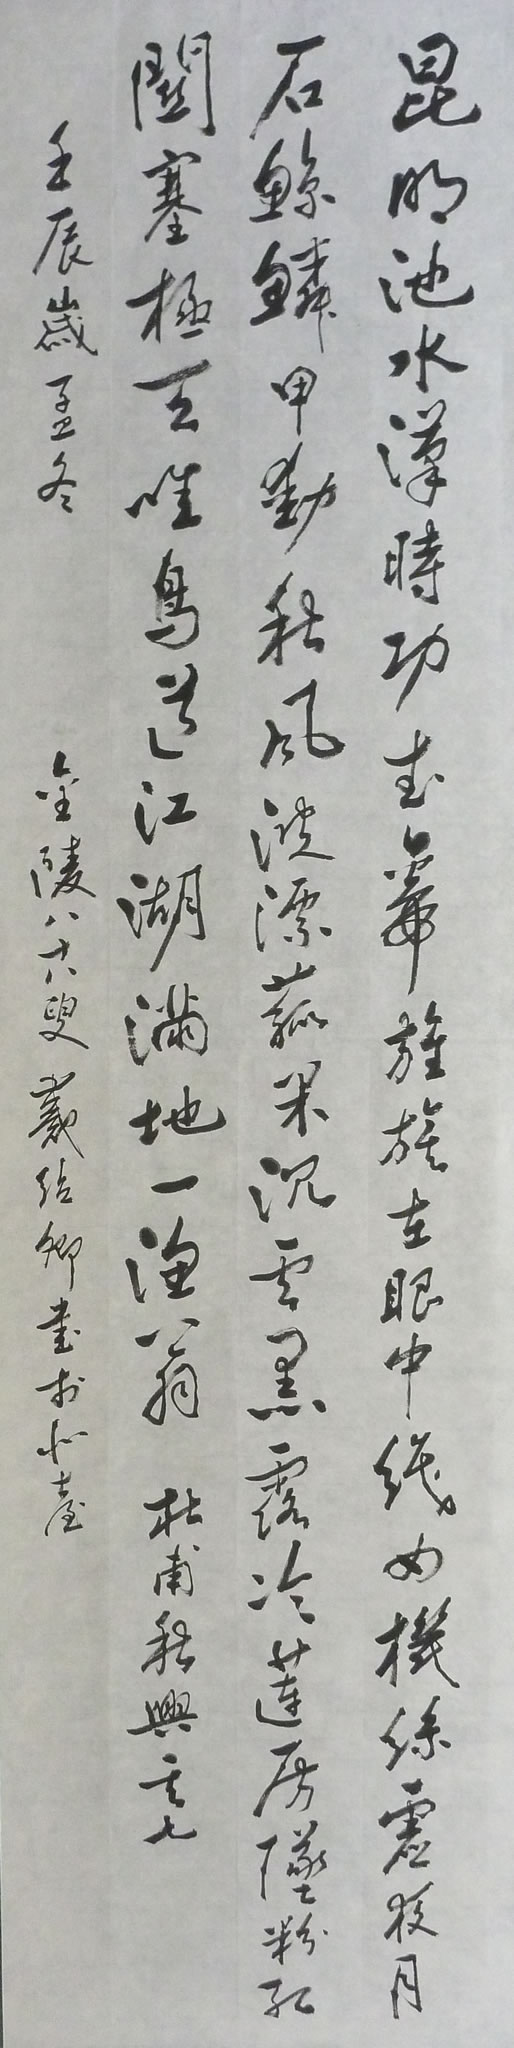 昆明池水漢時功武帝旌旗在眼中織女機絲虛夜月
石鯨鱗甲動秋風波漂菰米沉雲黑露冷蓮房墜粉紅
關塞極天唯鳥道江湖滿地一漁翁 杜甫秋興其七
壬辰歲孟冬 金陵八十八叟戴結卿書於北臺